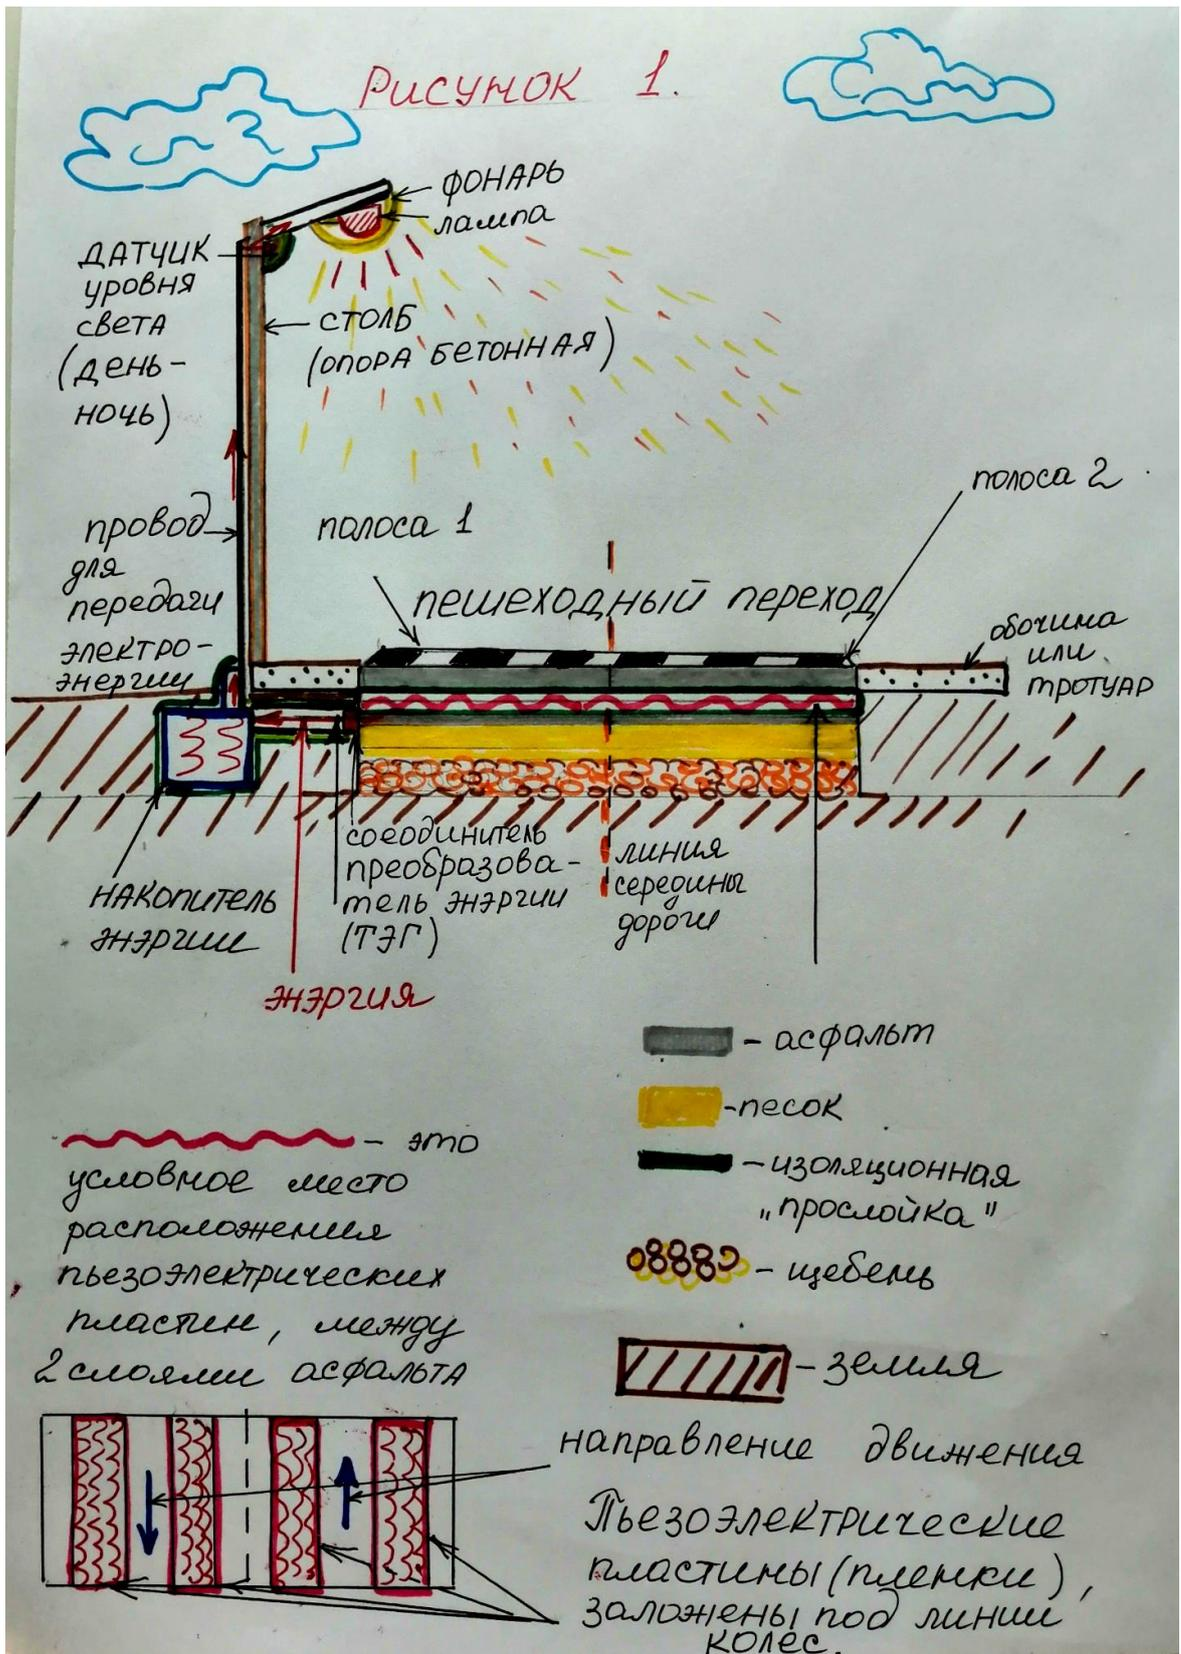 Рисунок 1.
ФОНАРЬ
лампа
ДАТЧИК
уровня
света
(день-
ночь)
СТОЛБ
(ОПОРА БЕТОННАЯ)
провод
для
передачи
электро-
энергии
полоса 1
полоса 2
пешеходный переход
обочина
или
тротуар
соединитель
преобразова-
тель энэргии
(ТЭГ)
линия
середины
дороги
НАКОПИТЕЛЬ
энэргии
энэргия
- асфальт
-песок
- изоляционная
„прослойка"
- щебень
- земля
- это
условное место
расположения
пьезоэлектрических
пластин, между
2 слоями асфальта
направление движения
Пьезоэлектрические
пластины (пленки),
заложены под линии
колес.